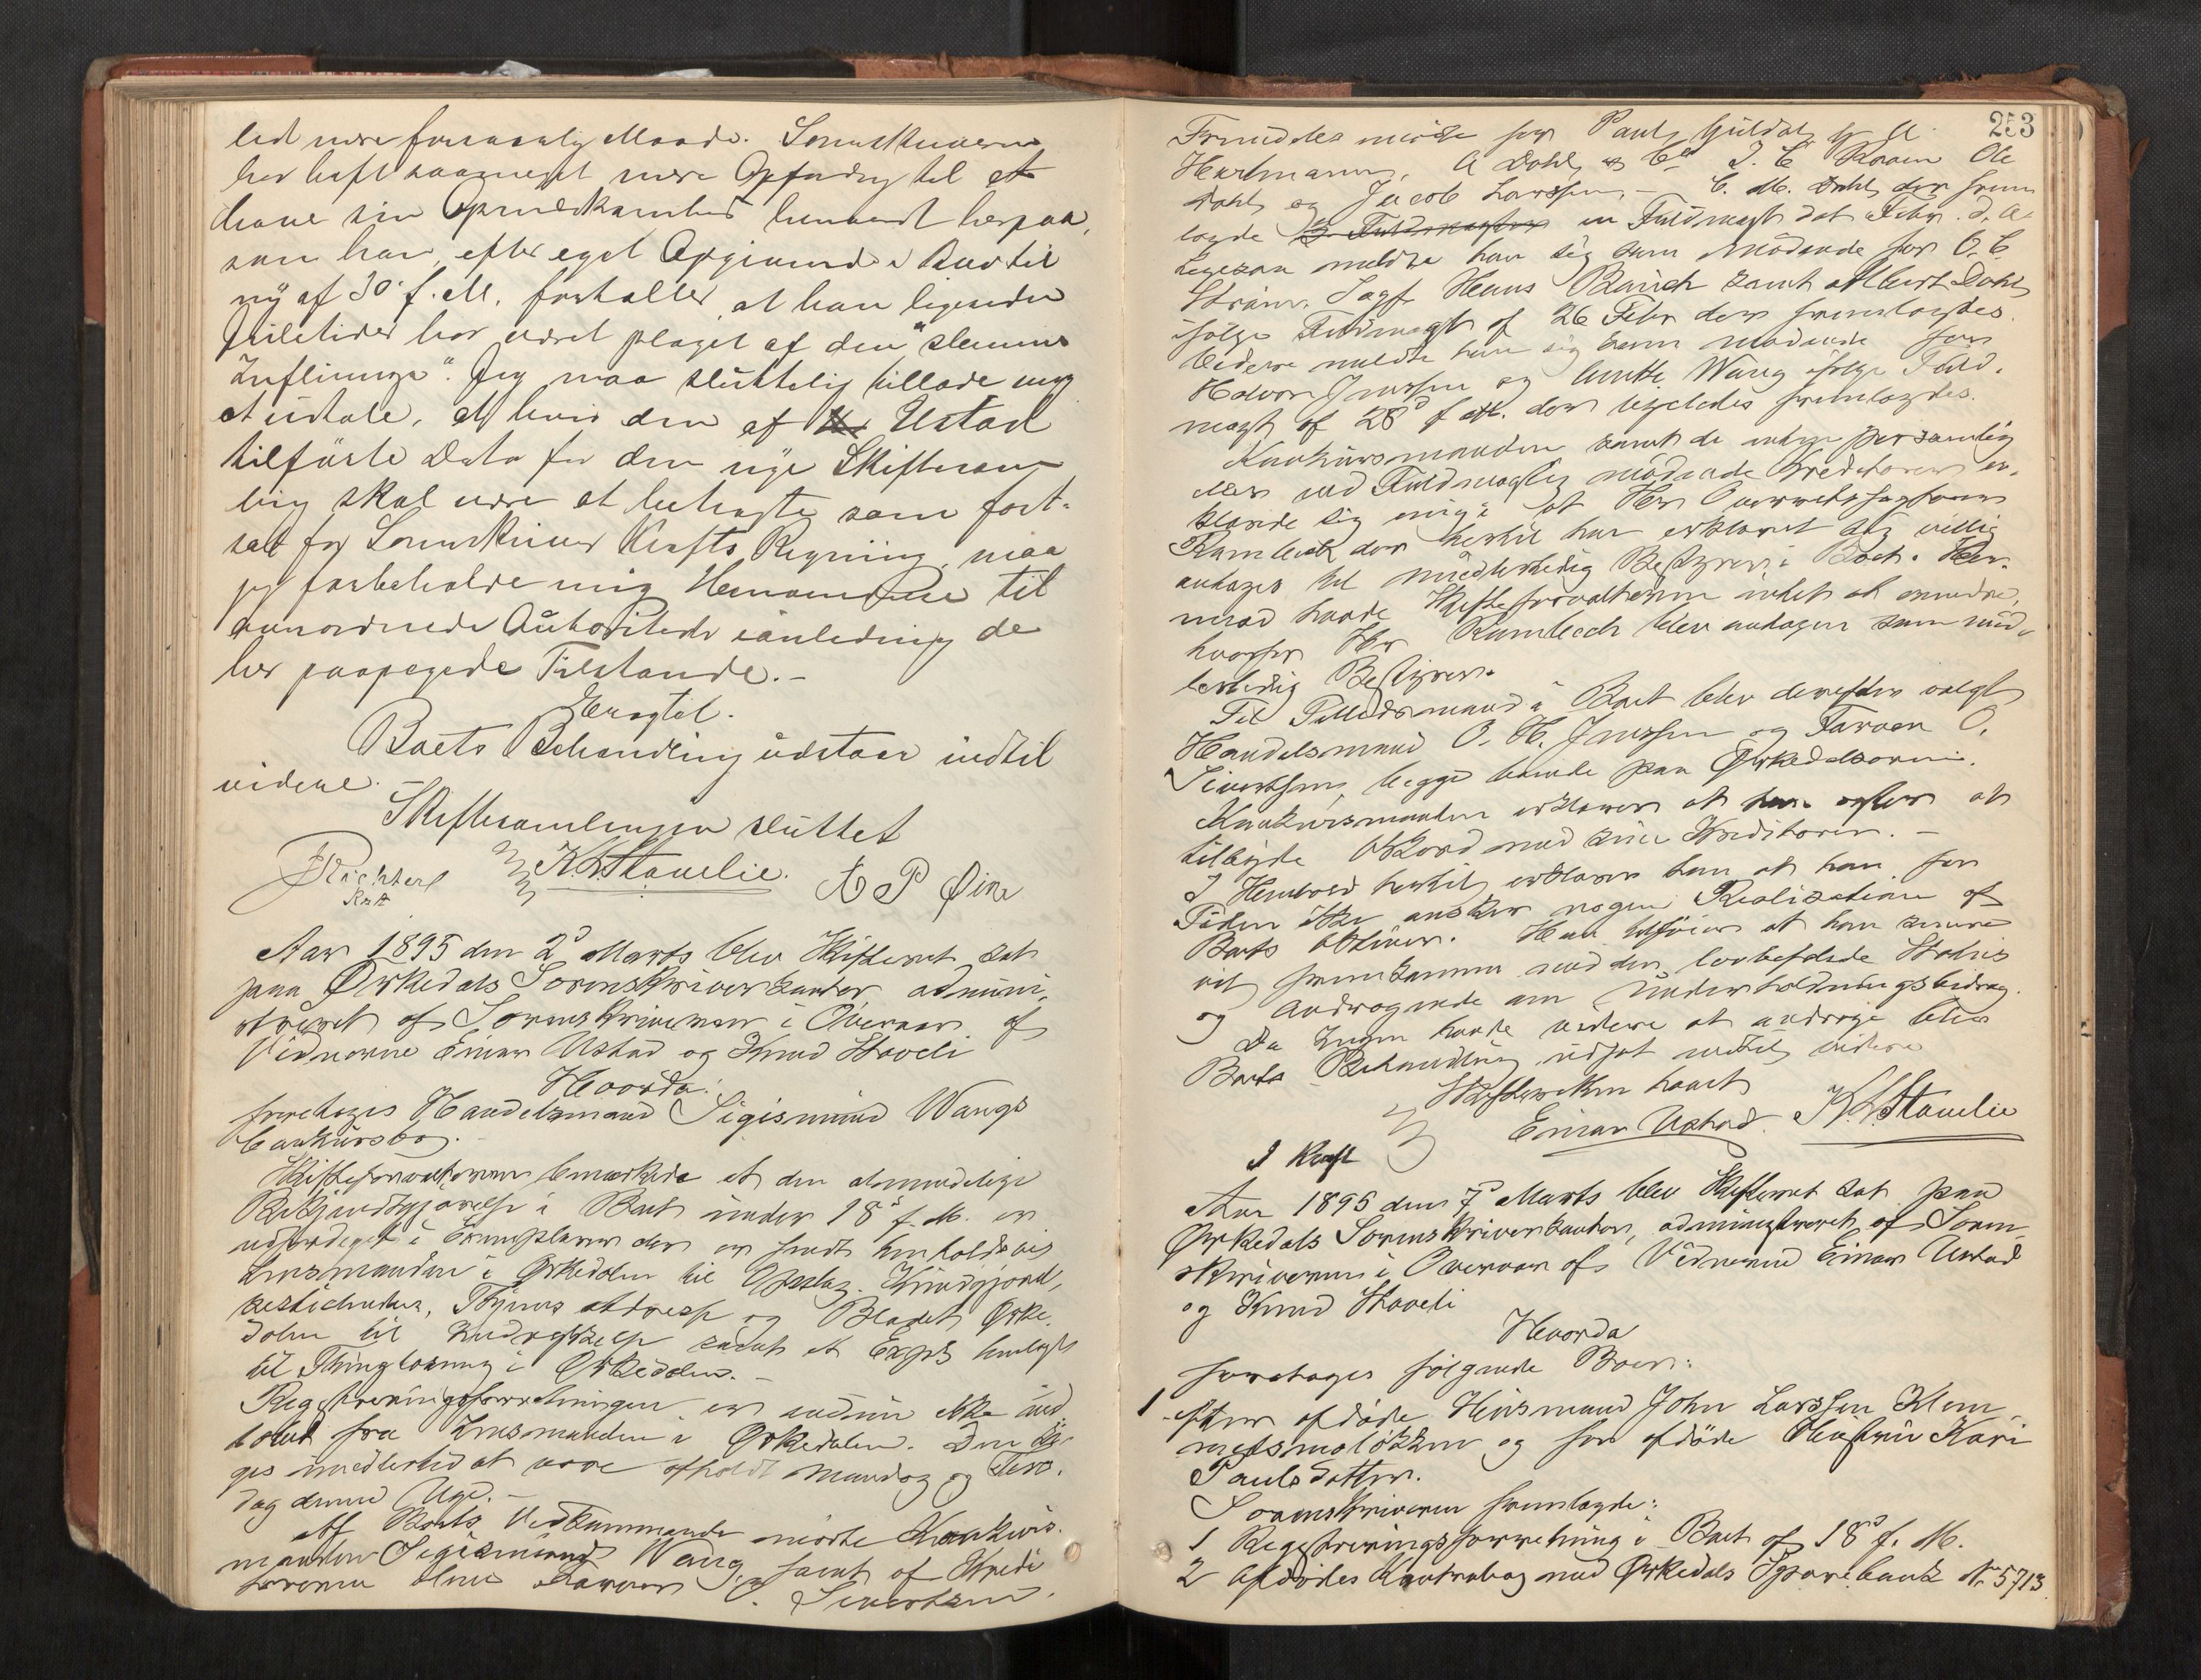 led mere forsvarlig Maade. Sorenskriveren
har havt saameget mere Opfordring til at
have sin Opmerksomhed henvendt herpaa,
som han, efter eget Opgivende i
af 30 f. M. fortæller, at han
har været plaget af den "slemme
". Jeg maa sluttelig tillade mig
at udtale, at hvis den af Ustad
tilførte Data for den nye Skiftesam-
ling skal være at betragte som fort-
sat for Sorenskriver Krafts Regning, maa
jeg forbeholde mig Henvendelse til
Autoritet i anledning de
her paapegede Tilstande. -
Boets Behandling udstaar indtil
videre.
Skiftesamlingen sluttet
Richter K. Staveli. A P Øien
Aar 1895 den 2d Marts blev Skifteret sat
paa Ørkedals Sorenskriverkontor, admini-
streret af Sorenskriveren i Overvær af
Vidnerne Einar Ustad og Knud Staveli
Hvorda:
foretoges Handelsmand Sigismund Wangs
Concursbo. -
Skifteforvalteren bemærkede at den almindelige
Bekjendtgjørelse i Boet under 18de f. M. er
udfærdiget i Exemplarer der er sendt henholdsvis
Lensmanden i Ørkedalen til Opslag, Kundgjørel-
sestidende, og Bladet Ørke-
dølen til Indrykkelse samt et Expl. henlagt
til Thinglæsning i Ørkedalen. -
Registreringsforretningen er endnu ikke ind-
kommet fra Lensmanden i Ørkedalen. Den si-
ges imedlertid at være afholdt Mandag og Tirs-
dag denne Uge. -
Af Boets Vedkommende mødte Konkurs-
manden Sigismund Wang, samt af Kredi-
torerne O. Sivertsen.
253
Fremdeles mødte for Paul Guldal,
Hartmann, A Dahl & Co J. C Ole
Dahl og Jacob Larssen, - C. M. Dahl, der frem-
lagde en Fuldmagt dat Febr. d. A.
meldte han sig som mødende for O. C
Sagf. Hans samt Albert Dahl
ifølge Fuldmagt af 26 Febr der fremlagdes.
Videre meldte han sig som mødende for
Halvor Janssen og Wang ifølge Fuld-
magt af 28d f M. der ligeledes fremlagdes.
Konkursmanden samt de enten personlig
eller ved Fuldmagtig mødende Kreditorer er-
klærede sig enige i at Hr Overretssagfører
Rambech der hertil har erklæret sig villig
antages til midlertidig Bestyrer i Boet. Her-
imod havde Skifteforvalteren intet at erindre,
hvorfor Hr Rambech blev antagen som mid-
lertidig Bestyrer.
Til Tillidsmænd i Boet blev derefter valgt
Handelsmand O. H. Janssen og Farver O.
Sivertsen, begge boende paa Ørkedalsøren.
Konkursmanden erklærer at han agter at
tilbyde Akkord med sine Kreditorer. -
I Henhold hertil erklærer han at han for
Tiden ikke ønsker nogen Realisation af
Boets Aktiver. Han tilføier at han senere
vil fremkomme med den lovbefalede Status
og Andragende om Underholdningsbidrag.
Da Ingen havde videre at andrage blev
Boets Behandling udsat indtil videre
Skifteretten hævet
J Kraft Einar Ustad. K. Staveli
Aar 1895 den 7d Marts blev Skifteret sat paa
Ørkedals Sorenskriverkontor, administreret af Soren-
skriveren i Overvær af Vidnerne Einar Ustad
og Knud Staveli
Hvorda
foretoges følgende Boer:
1. efter afdøde Husmand John Larssen Klem-
og før afdøde Hustru Kari
Paulsdatter.
Sorenskriveren fremlagde:
1 Registreringsforretning i Boet af 18d f. M.
2 Afdødes Kontrabog med Ørkedals Sparebank No 5713.